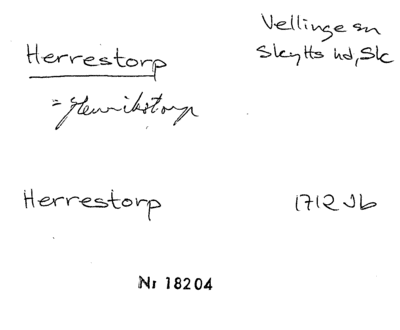 Vellinge sn
Herrestorp
Skytts hd, Sk
= Henrikstorp
Herrestorp
1712 Jb
Nr 18204